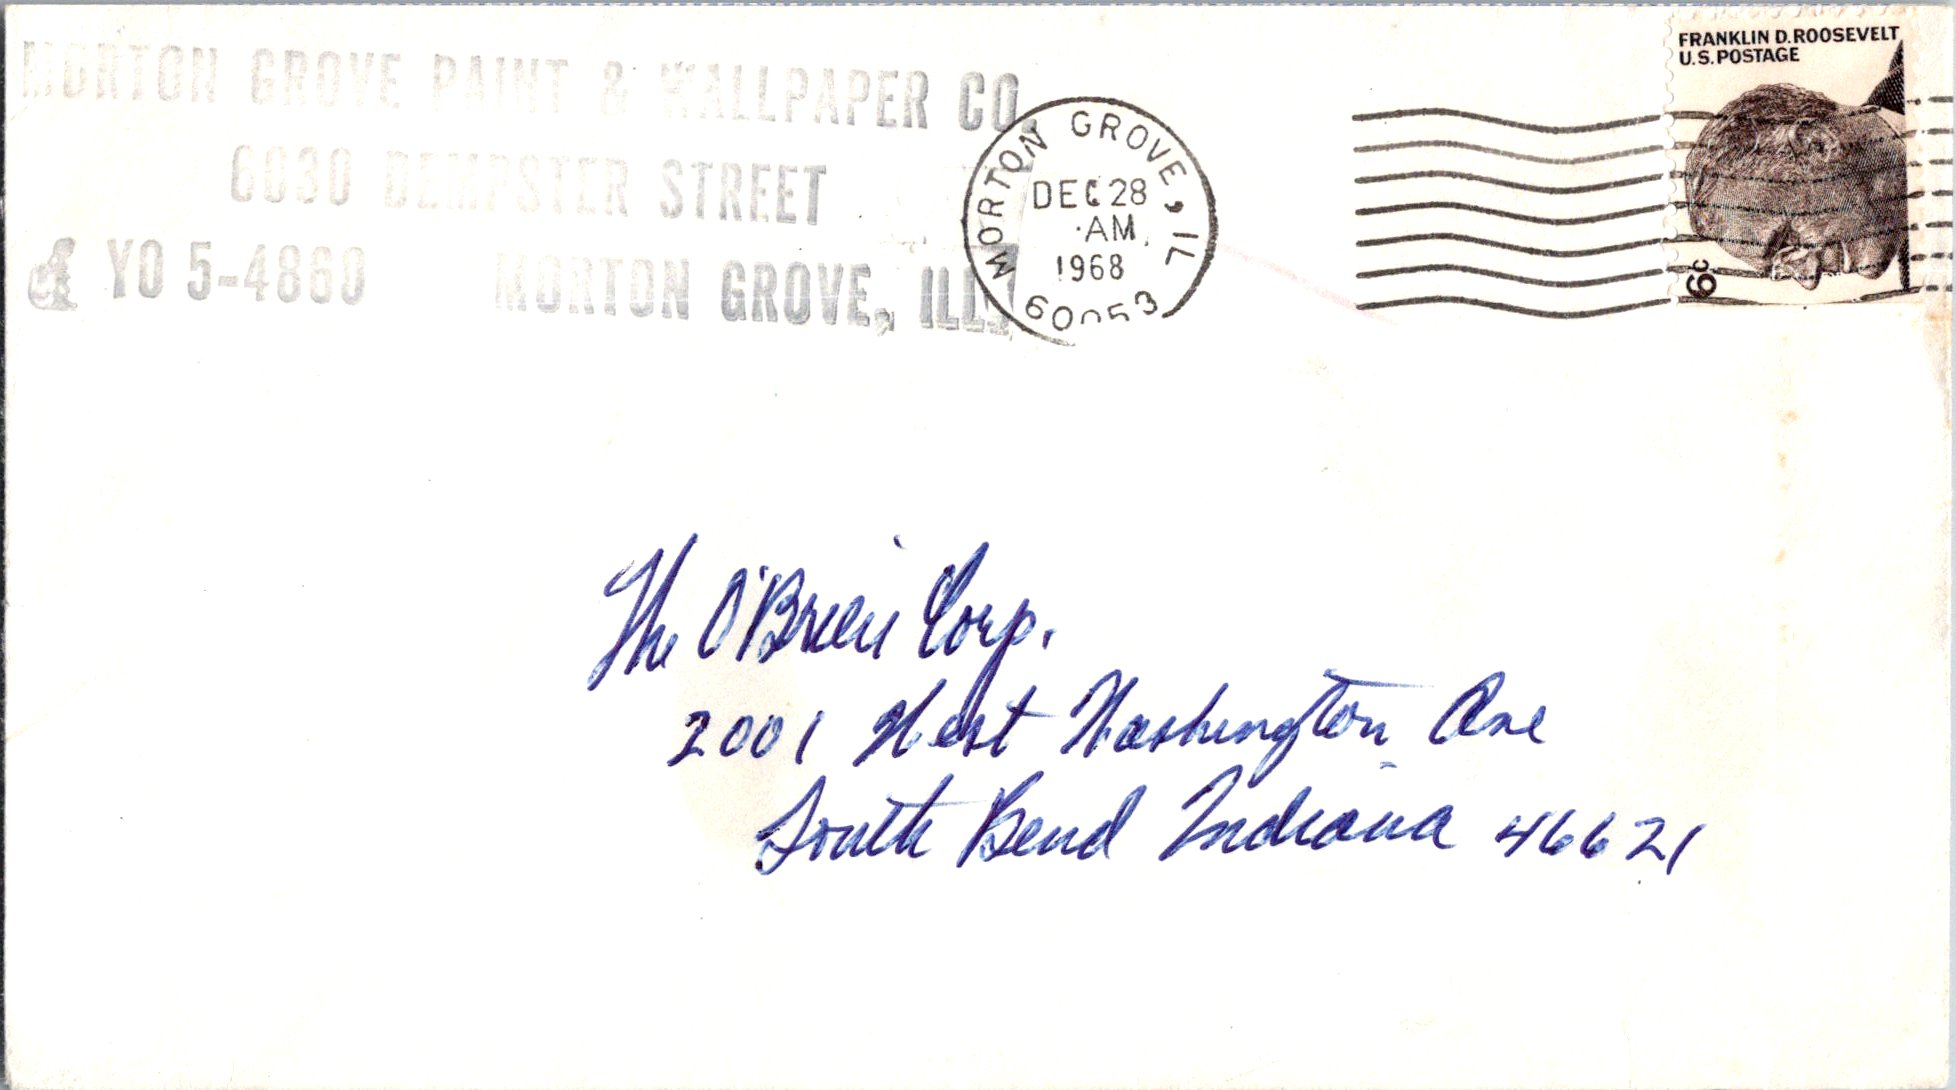 MORTON GROVE PAINT & WALLPAPER CO.
6030 DEMPSTER STREET
YO 5-4860 MORTON GROVE, ILL.
MORTON GROVE, IL
DEC 28
AM
1968
60053
FRANKLIN D. ROOSEVELT
U.S. POSTAGE
6c
The O'Brien Corp.
2001 West Washington Ave
South Bend Indiana 46621